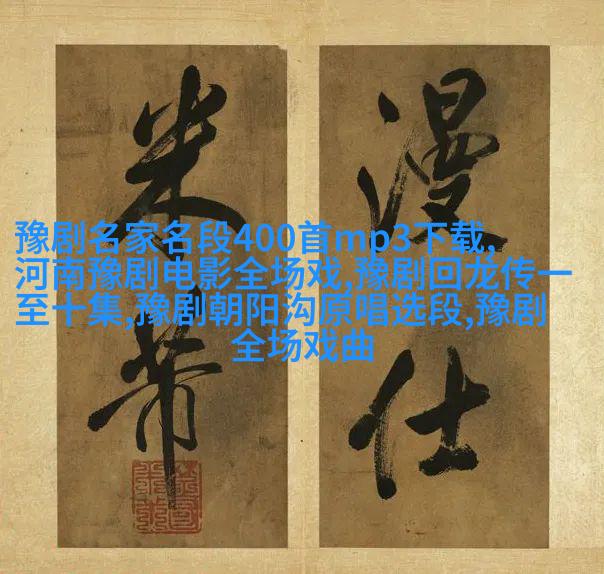 漫仕
米芾
豫剧名家名段400首mp3下载,
河南豫剧电影全场戏,豫剧回龙传一
至十集,豫剧朝阳沟原唱选段,豫剧
全场戏曲